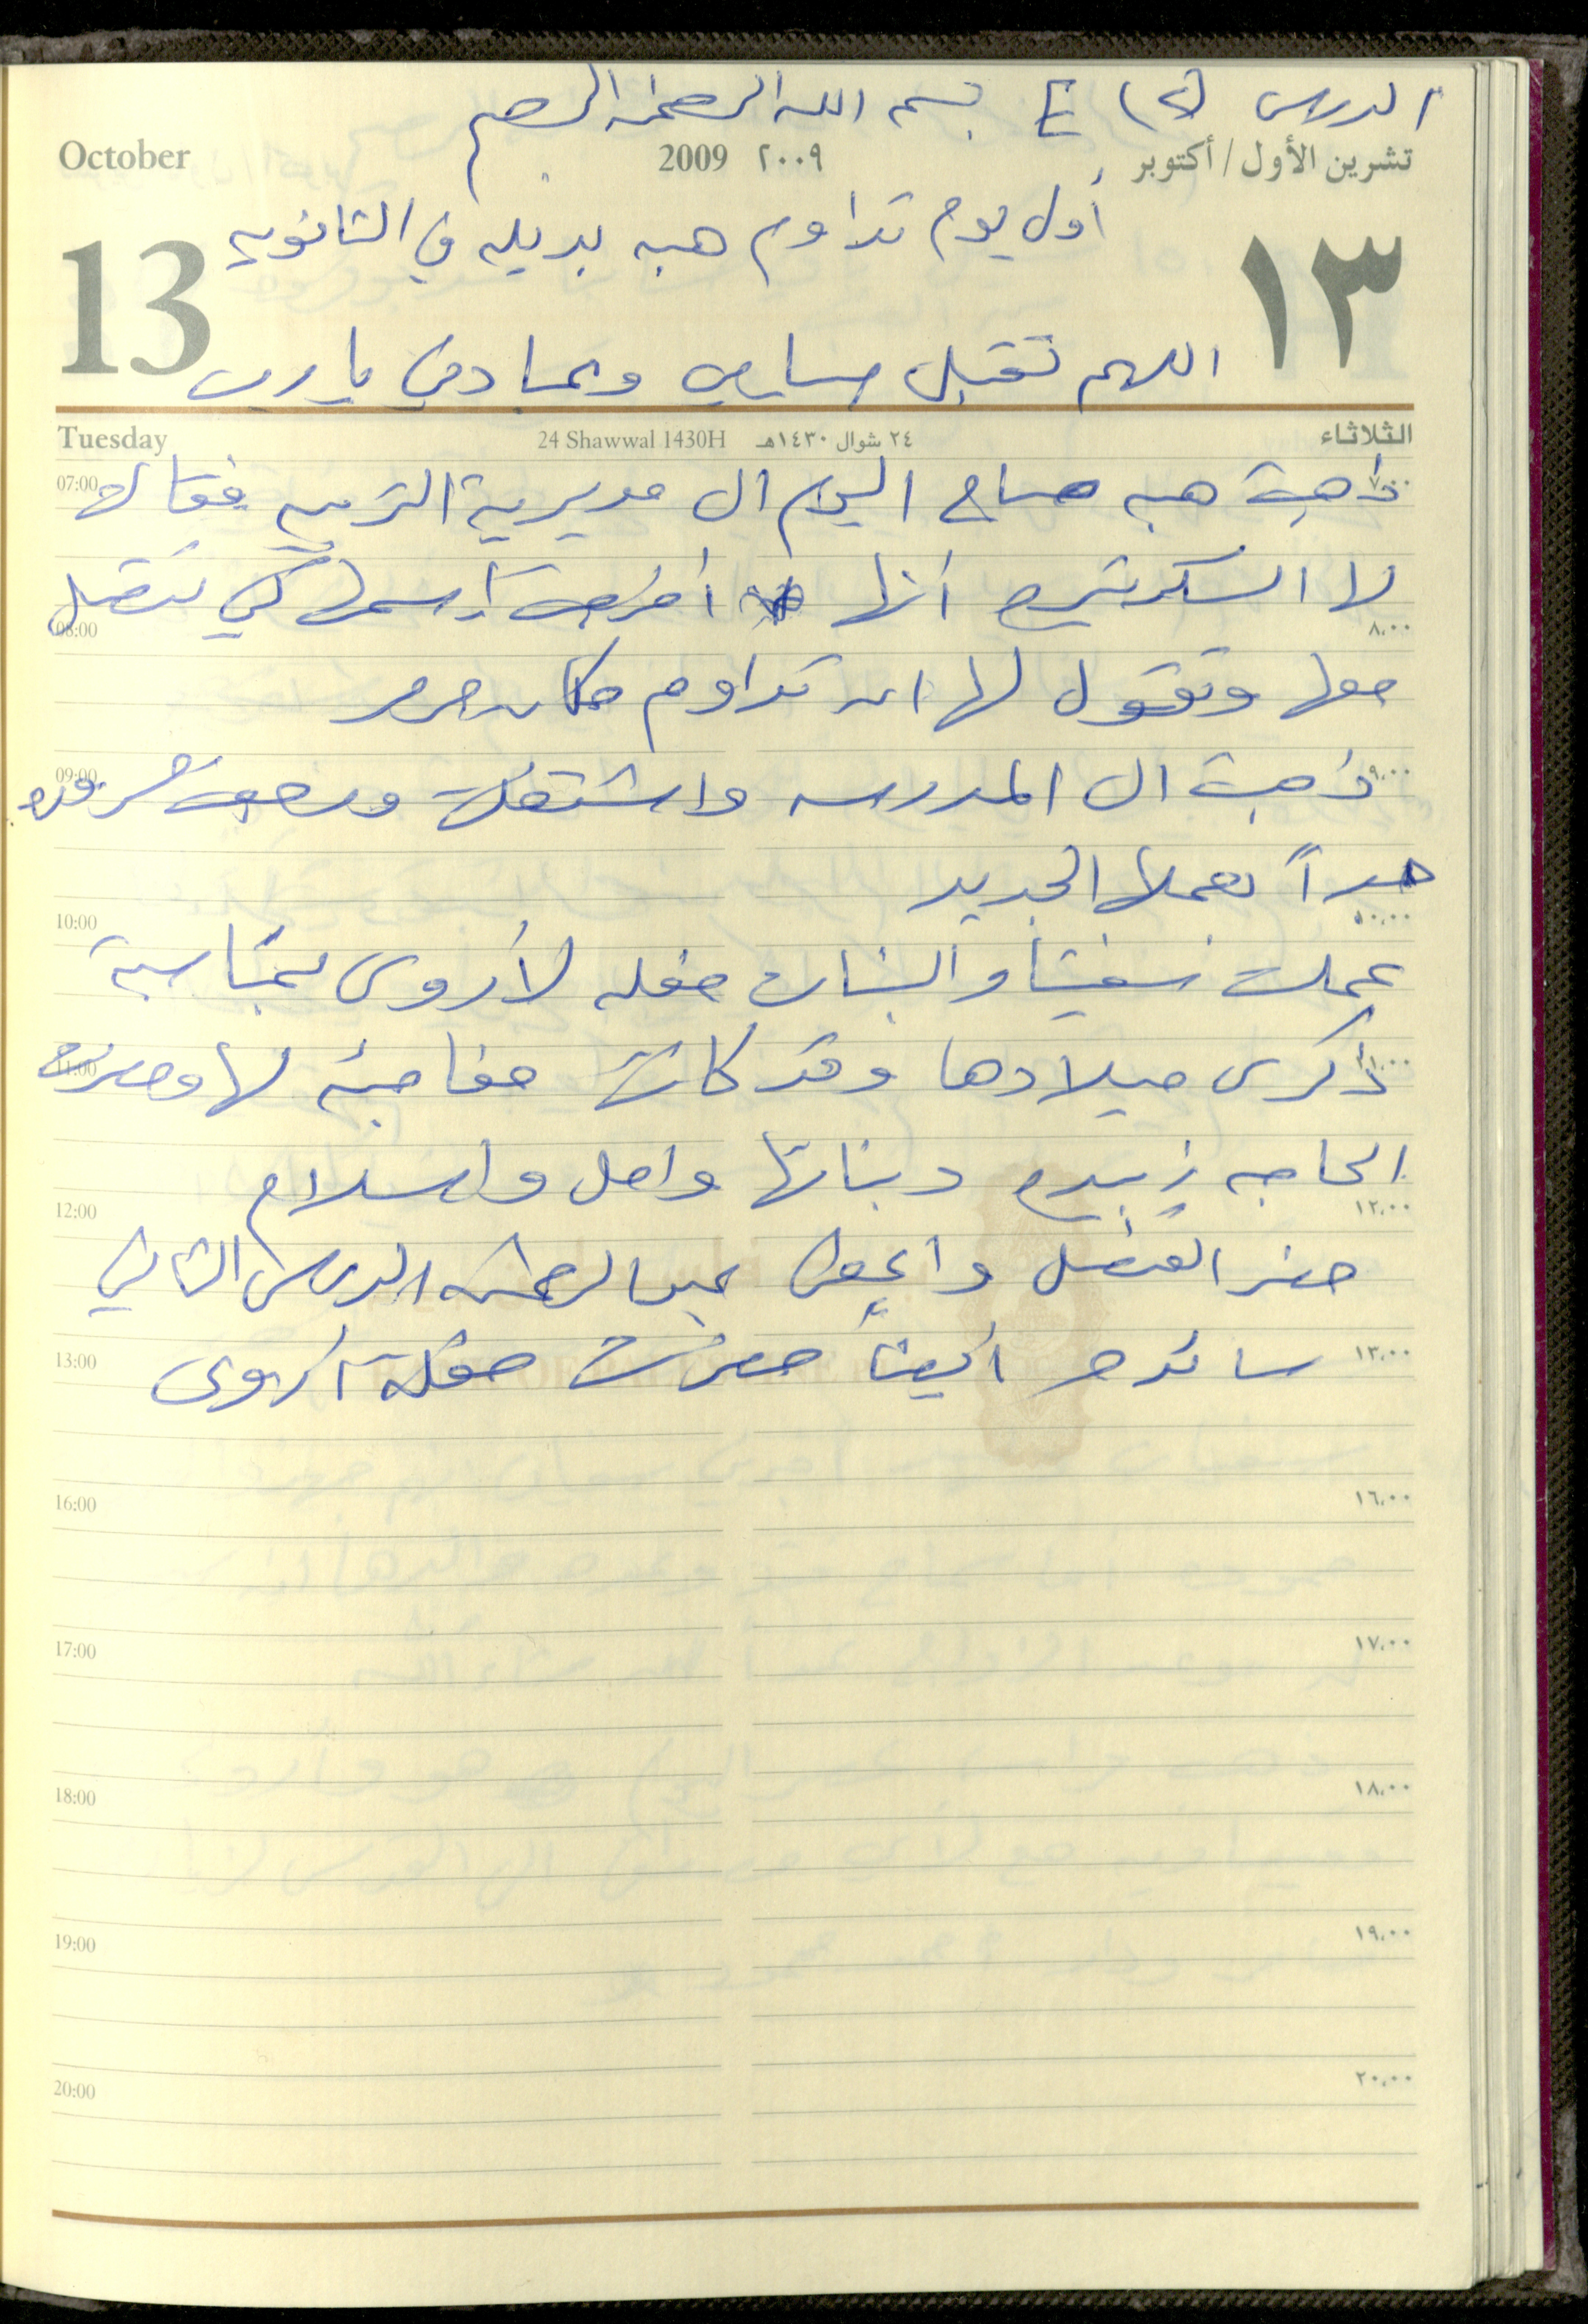 الدرس (٢) E بسم الله الرحمن الرحيم
October 2009 ٢٠٠٩ تشرين الأول / أكتوبر
أول يوم تداوم هبه بديله في الثانويه
13 ١٣
اللهم تقبل صيامي وعبادتي يا رب
Tuesday 24 Shawwal 1430H ٢٤ شوال ١٤٣٠هـ الثلاثاء
07:00 ٧،٠٠
ذهبت هبه صباح اليوم الى مديرية التربيه فقالت
لها السكرتيره أنها أخرجت اسمها لكي تتصل
08:00 ٨،٠٠
معها وتقول لها ان تداوم مكان
09:00 ٩،٠٠
ذهبت الى المدرسه واشتغلت ورجعت مسروره
جداً بعملها الجديد
10:00 ١٠،٠٠
عملت والبنات حفله لأروى بمناسبة
11:00 ١١،٠٠
ذكرى ميلادها وقد كانت مفاجئه لها وحضرت
الحاجه زبيده وبناتها وامل واسلام
12:00 ١٢،٠٠
حضر الفضل وأعطى عبد الرحمن الدرس الثاني
13:00 ١٣،٠٠
أيضاً حضرت حفلة أروى
16:00 ١٦،٠٠
17:00 ١٧،٠٠
18:00 ١٨،٠٠
19:00 ١٩،٠٠
20:00 ٢٠،٠٠